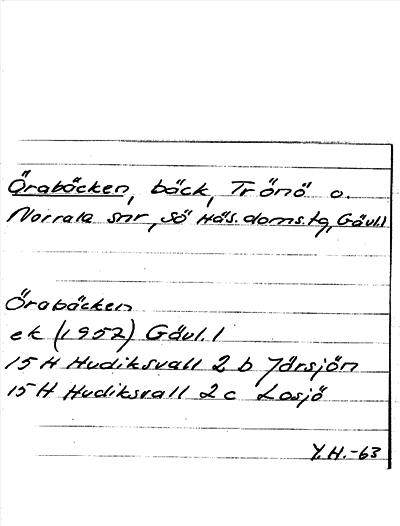 Öraböcken, bäck, Trönö o.
Norrala snr, Sö Häs. doms.tg, Gävl.l
Öraböcken
ek (1952) Gävl. l
15 H Hudiksvall 2 b Järsjön
15 H Hudiksvall 2 c Losjö
Y.H.-63